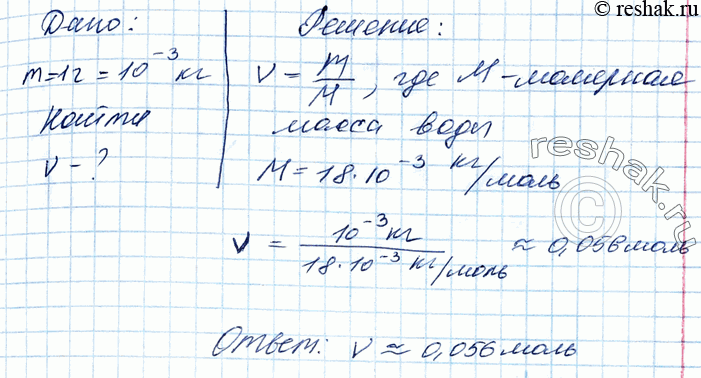 © reshak.ru
Дано:
m=1г=10⁻³ кг
Найти
ν-?
Решение:
ν = m/M, где M-молярная
масса воды
M=18·10⁻³ кг/моль
ν = 10⁻³кг / 18·10⁻³ кг/моль ≈ 0,056 моль
Ответ: ν ≈ 0,056 моль
© reshak.ru